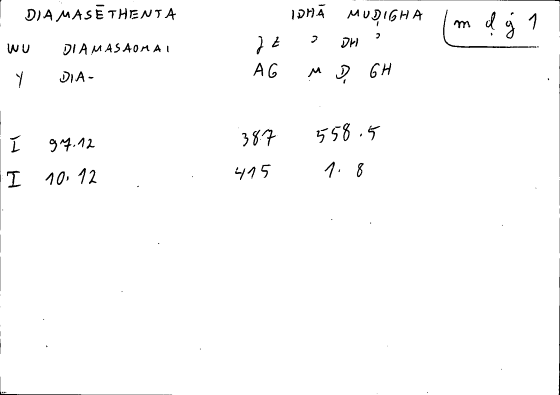 DIAMASĒTHENTA IDHĀ MUḌIGHA m ḍ ġ 1
WU DIAMASAOMAI ʒ E ʾ DH ʾ
Y DIA- AG M Ḍ GH
I 97.12 387 558.5
I 10.12 415 1.8